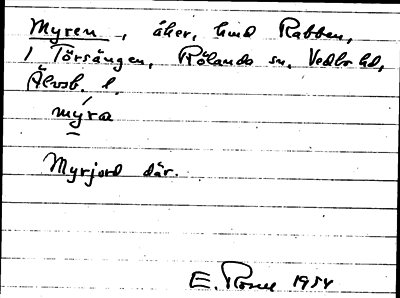 Myren, åker, hmd Rabben,
1 Törsängen, Rölanda sn, Vedbo hd,
Älvsb. l.
mýra
Myrjord där.
E. 1954